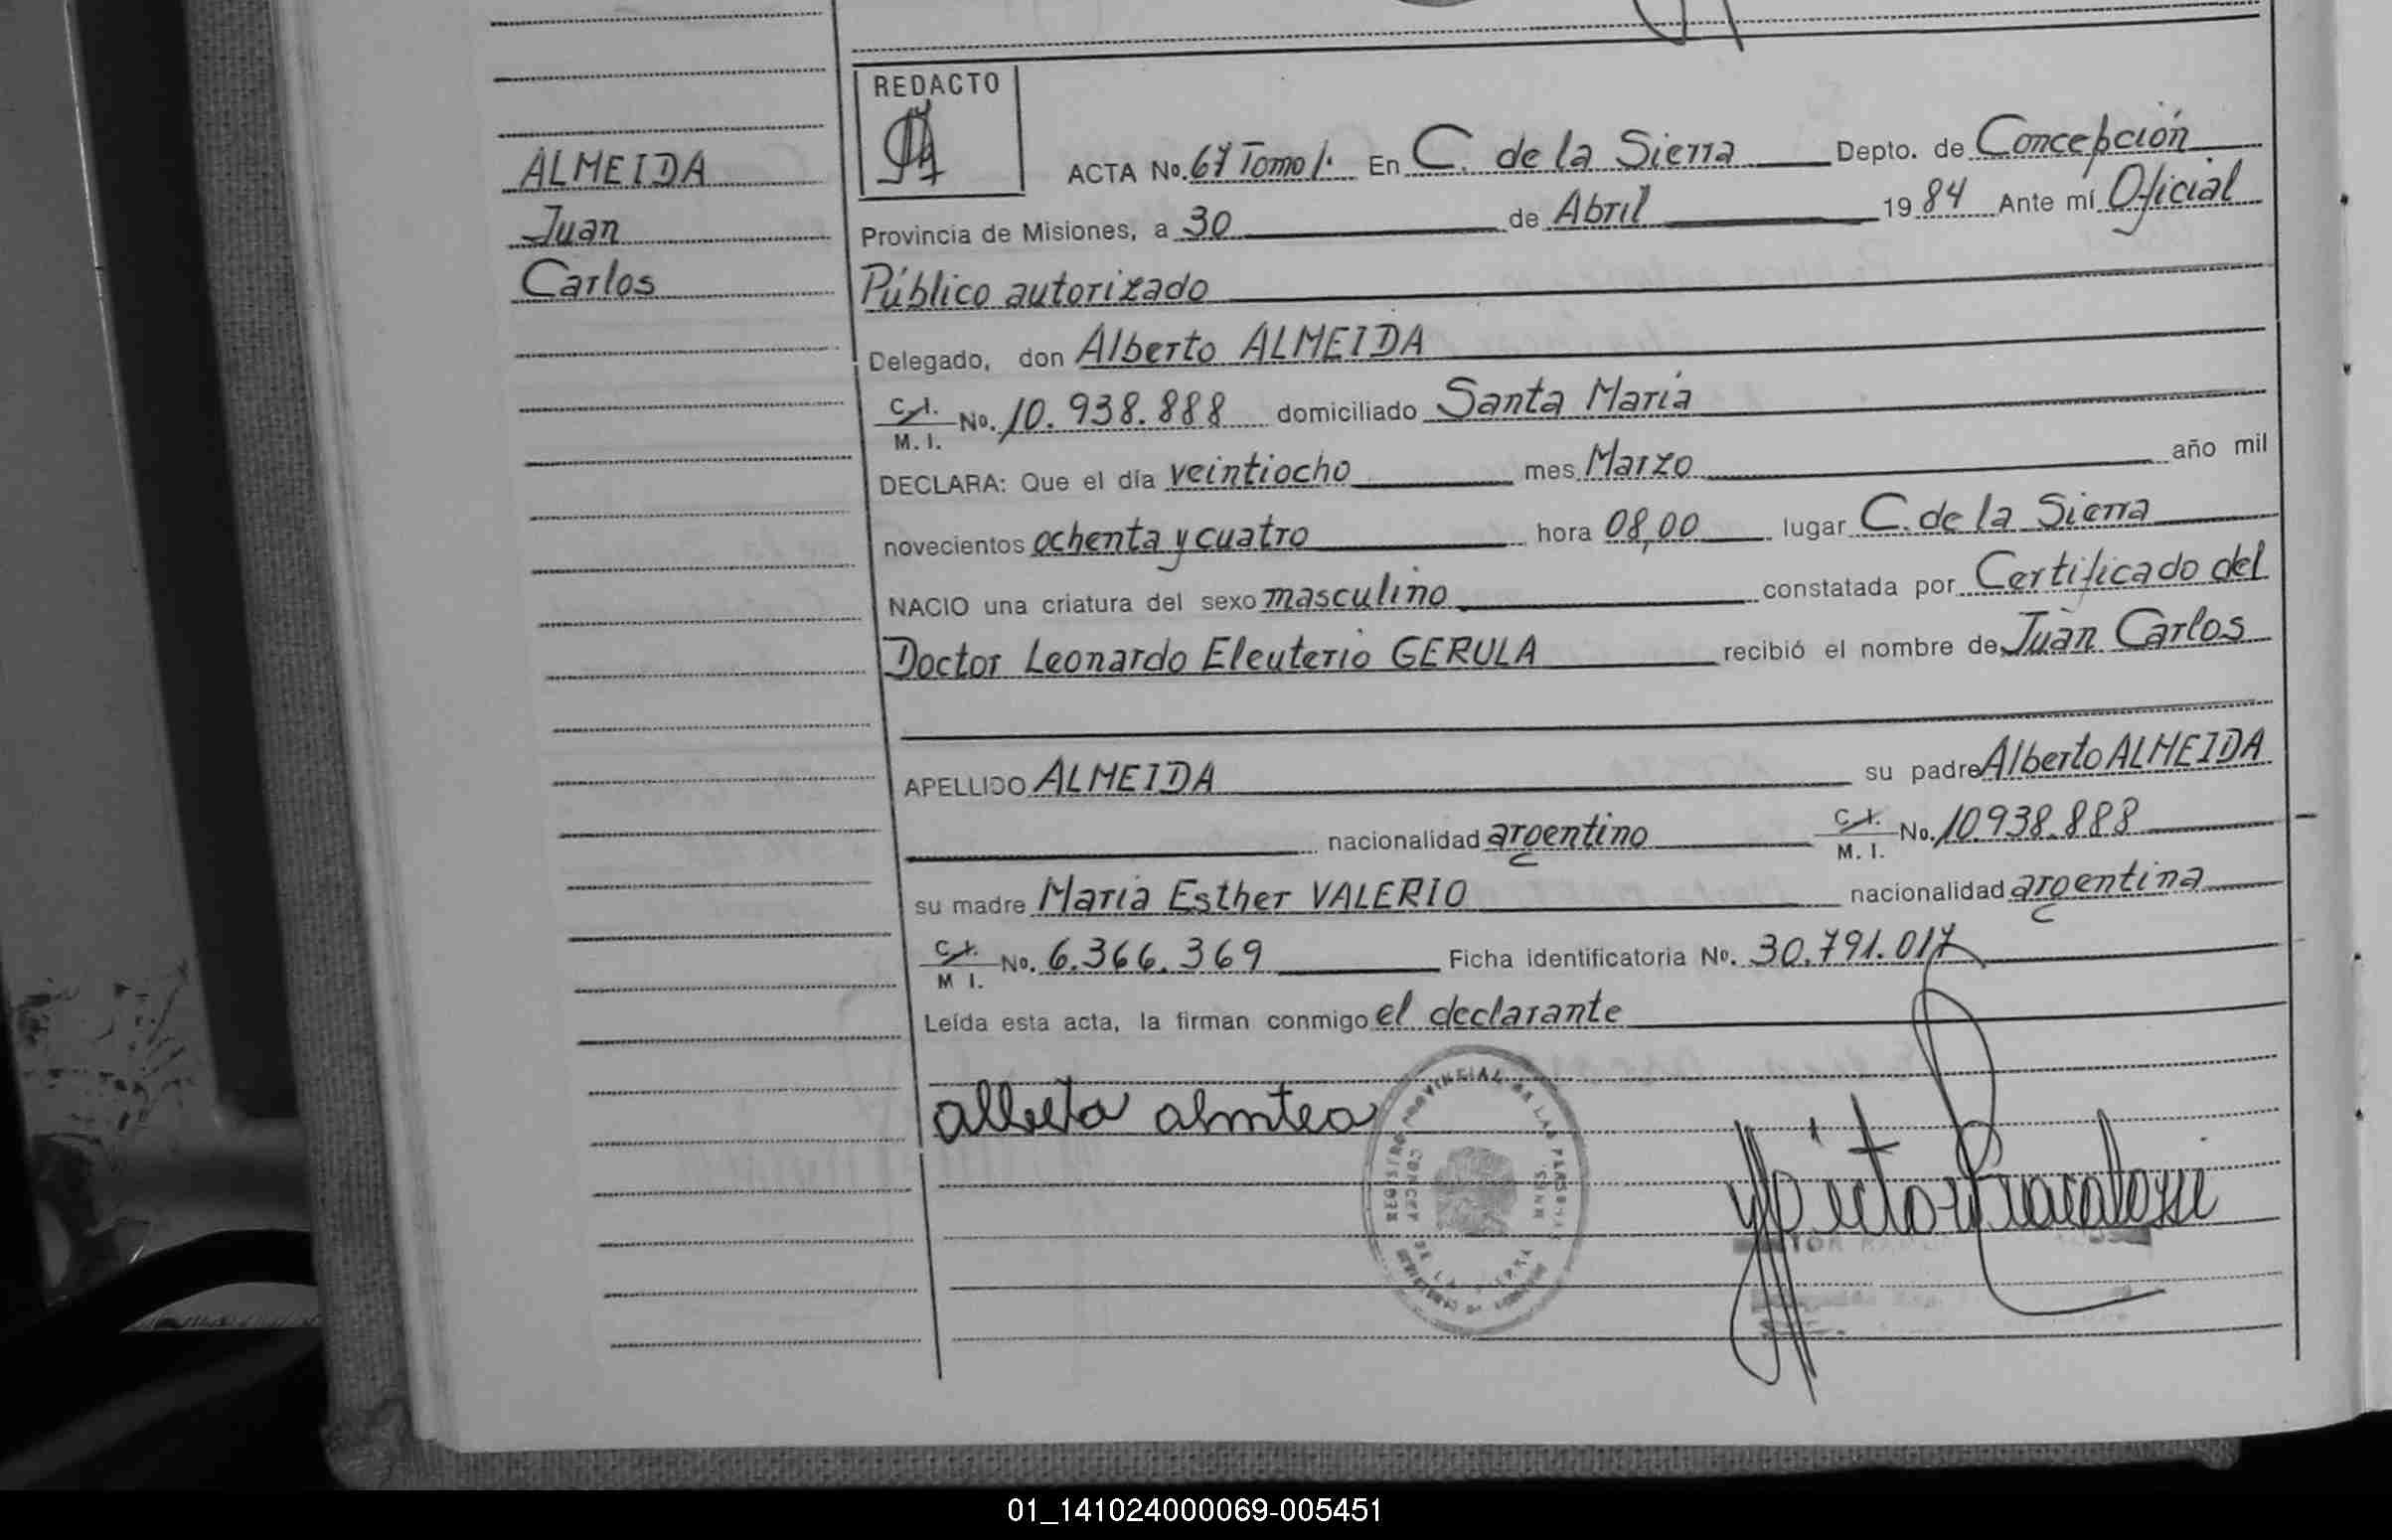 REDACTO
ALMEIDA
Juan
Carlos
ACTA No. 67 Tomo 1. En C. de la Sierra Depto. de Concepción
Provincia de Misiones, a 30 de Abril 1984 Ante mí Oficial
Público autorizado
Delegado, don Alberto ALMEIDA
C.I.
M. I. No. 10.938.888 domiciliado Santa María
DECLARA: Que el día veintiocho mes Marzo año mil
novecientos ochenta y cuatro hora 08,00 lugar C. de la Sierra
NACIO una criatura del sexo masculino constatada por Certificado del
Doctor Leonardo Eleuterio GERULA recibió el nombre de Juan Carlos
APELLIDO ALMEIDA su padre Alberto ALMEIDA
nacionalidad argentino C.I.
M. I. No. 10.938.888
su madre María Esther VALERIO nacionalidad argentina
C.I.
M I. No. 6.366.369 Ficha identificatoria No. 30.791.017
Leída esta acta, la firman conmigo el declarante
REGISTRO PROVINCIAL DE LAS PERSONAS
CONCEP. DE LA SIERRA MNES.
01_141024000069-005451